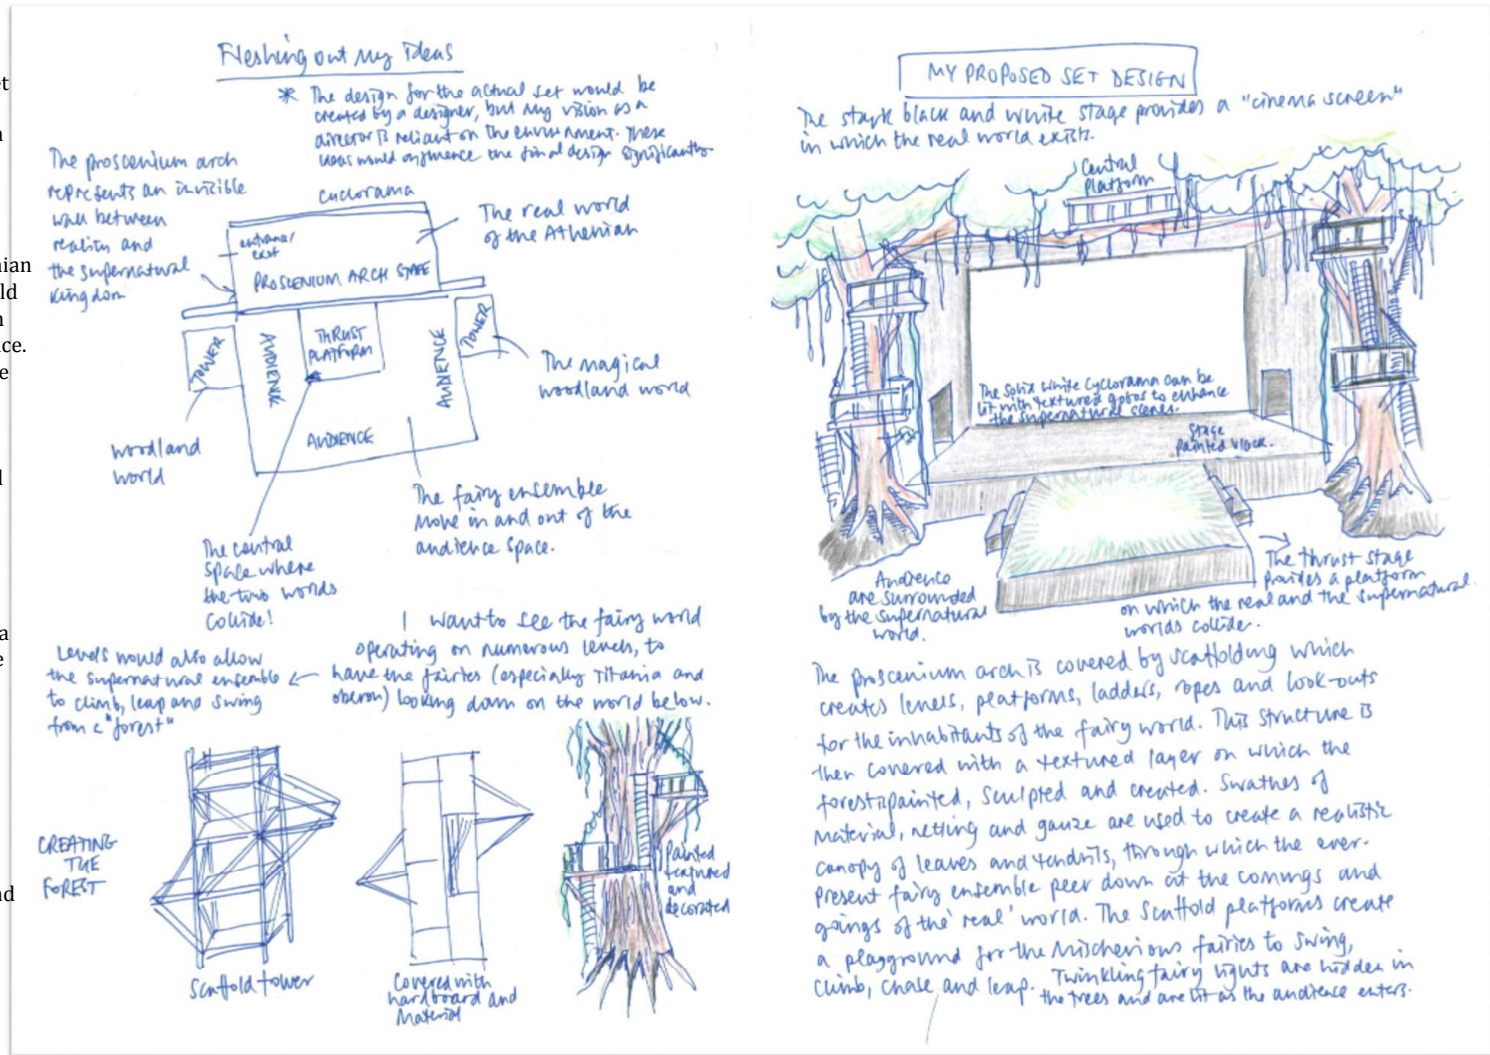 et
nian
ld
ce.
e
a
e
nd
Fleshing out my ideas
* The design for the actual set would be
created by a designer, but my vision as a
director is reliant on the environment. These
ideas would influence the final design significantly.
The proscenium arch
represents an invisible
wall between
reality and
the supernatural
kingdom
cyclorama
entrance/
exit
PROSCENIUM ARCH STAGE
The real world
of the Athenian
TOWER
AUDIENCE
THRUST
PLATFORM
AUDIENCE
TOWER
AUDIENCE
The magical
woodland world
woodland
world
The fairy ensemble
move in and out of the
audience space.
The central
space where
the two worlds
collide!
I want to see the fairy world
operating on numerous levels, to
have the fairies (especially Titania and
oberon) looking down on the world below.
Levels would also allow
the supernatural ensemble
to climb, leap and swing
from a "forest"
CREATING
THE
FOREST
Scaffold tower
Covered with
hardboard and
Material
Painted
textured
and
decorated
MY PROPOSED SET DESIGN
The stark black and white stage provides a "cinema screen"
in which the real world exists.
Central
platform
The solid white cyclorama can be
lit with textured gobos to enhance
the supernatural scenes.
Stage
painted black.
Audience
are surrounded
by the supernatural
world.
The thrust stage
provides a platform
on which the real and the supernatural
worlds collide.
The proscenium arch is covered by scaffolding which
creates levels, platforms, ladders, ropes and look-outs
for the inhabitants of the fairy world. This structure is
then covered with a textured layer on which the
forest is painted, sculpted and created. Swathes of
material, netting and gauze are used to create a realistic
canopy of leaves and tendrils, through which the ever-
present fairy ensemble peer down at the comings and
goings of the 'real' world. The scaffold platforms create
a playground for the mischevious fairies to swing,
climb, chase and leap. Twinkling fairy lights are hidden in
the trees and are lit as the audience enters.